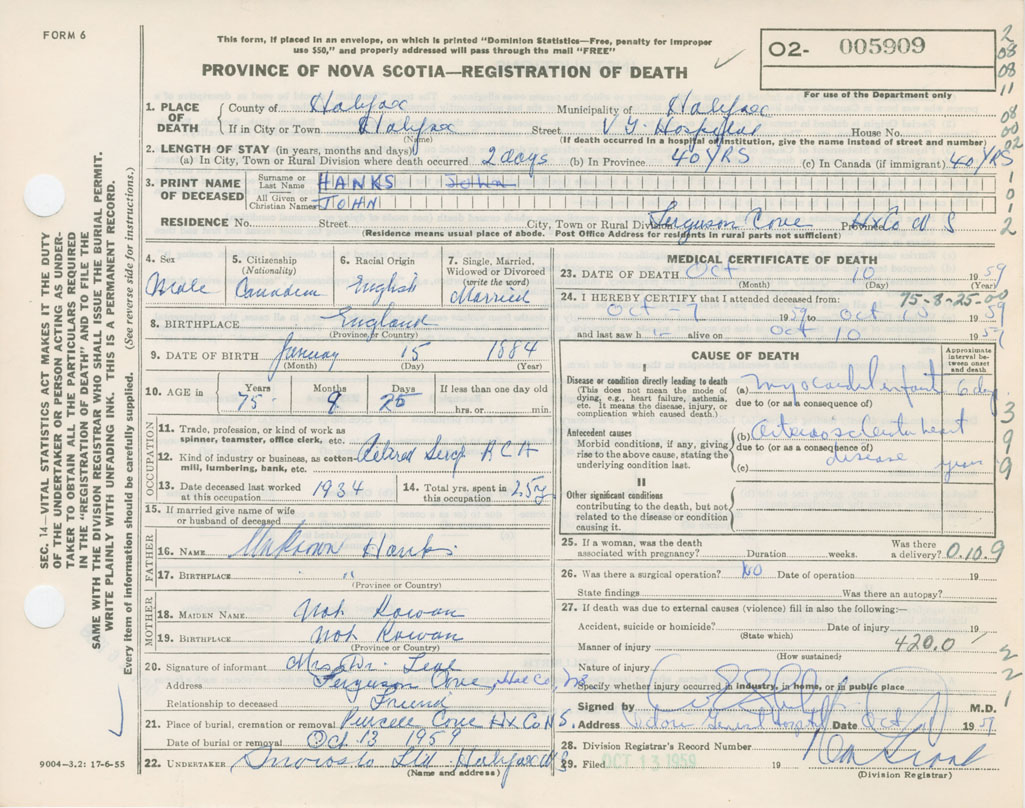 FORM 6
This form, if placed in an envelope, on which is printed "Dominion Statistics—Free, penalty for improper
use $50," and properly addressed will pass through the mail "FREE"
O2- 005909
PROVINCE OF NOVA SCOTIA—REGISTRATION OF DEATH
For use of the Department only
2
08
08
11
08
00
22
1
0
1
2
1. PLACE OF DEATH
County of Halifax Municipality of Halifax
If in City or Town Halifax Street V G. Hospital House No.
(Name) (If death occurred in a hospital or institution, give the name instead of street and number)
2. LENGTH OF STAY (in years, months and days)
(a) In City, Town or Rural Division where death occurred 2 days (b) In Province 40 YRS (c) In Canada (if immigrant) 40 YRS
3. PRINT NAME OF DECEASED
Surname or Last Name HANKS John
All Given or Christian Names JOHN
RESIDENCE No. Street City, Town or Rural Division Ferguson Cove Province Hx Co N S
(Residence means usual place of abode. Post Office Address for residents in rural parts not sufficient)
4. Sex
Male
5. Citizenship
(Nationality)
Canadian
6. Racial Origin
English
7. Single, Married,
Widowed or Divorced
(write the word)
Married
8. BIRTHPLACE England
(Province or Country)
9. DATE OF BIRTH January 15 1884
(Month) (Day) (Year)
10. AGE in
Years Months Days If less than one day old
75 9 25 hrs. or min.
OCCUPATION
11. Trade, profession, or kind of work as
spinner, teamster, office clerk, etc.
12. Kind of industry or business, as cotton-
mill, lumbering, bank, etc.
Retired R C A
13. Date deceased last worked
at this occupation 1934
14. Total yrs. spent in
this occupation 25 y
15. If married give name of wife
or husband of deceased
FATHER
16. NAME Unknown Hanks
17. BIRTHPLACE "
(Province or Country)
MOTHER
18. MAIDEN NAME Not Known
19. BIRTHPLACE Not Known
(Province or Country)
20. Signature of informant Mrs
Address Ferguson Cove, Hal Co, NS
Relationship to deceased Friend
21. Place of burial, cremation or removal Purcell Cove Hx Co N S.
Date of burial or removal Oct 13 1959
22. UNDERTAKER Ltd Halifax N S
(Name and address)
MEDICAL CERTIFICATE OF DEATH
23. DATE OF DEATH Oct 10 1959
(Month) (Day) (Year)
75-8-25-00
24. I HEREBY CERTIFY that I attended deceased from:
Oct - 7 1959 to Oct 10 1959
and last saw h alive on Oct 10 195
CAUSE OF DEATH
Approximate
interval be-
tween onset
and death
I
Disease or condition directly leading to death
(This does not mean the mode of
dying, e.g., heart failure, asthenia,
etc. It means the disease, injury, or
complication which caused death.)
(a) myocardial infarct 6 days
due to (or as a consequence of)
Antecedent causes
Morbid conditions, if any, giving
rise to the above cause, stating the
underlying condition last.
(b) heart
due to (or as a consequence of)
disease years
(c)
II
Other significant conditions
contributing to the death, but not
related to the disease or condition
causing it.
3
9
9
25. If a woman, was the death
associated with pregnancy? Duration weeks. Was there
a delivery? 0.10.9
26. Was there a surgical operation? NO Date of operation 19
State findings Was there an autopsy?
27. If death was due to external causes (violence) fill in also the following:—
Accident, suicide or homicide? Date of injury 19
(State which)
Manner of injury 420.0
(How sustained)
Nature of injury
Specify whether injury occurred in industry, in home, or in public place
2
2
1
Signed by M.D.
Address Victoria General Hospital Date Oct 195
28. Division Registrar's Record Number
29. Filed OCT 13 1959 19
(Division Registrar)
SEC. 14—VITAL STATISTICS ACT MAKES IT THE DUTY
OF THE UNDERTAKER OR PERSON ACTING AS UNDER-
TAKER TO OBTAIN ALL THE PARTICULARS REQUIRED
IN THE "REGISTRATION OF DEATH" AND TO FILE THE
SAME WITH THE DIVISION REGISTRAR WHO SHALL ISSUE THE BURIAL PERMIT.
WRITE PLAINLY WITH UNFADING INK. THIS IS A PERMANENT RECORD.
Every item of information should be carefully supplied. (See reverse side for instructions.)
9004—3.2: 17-6-55